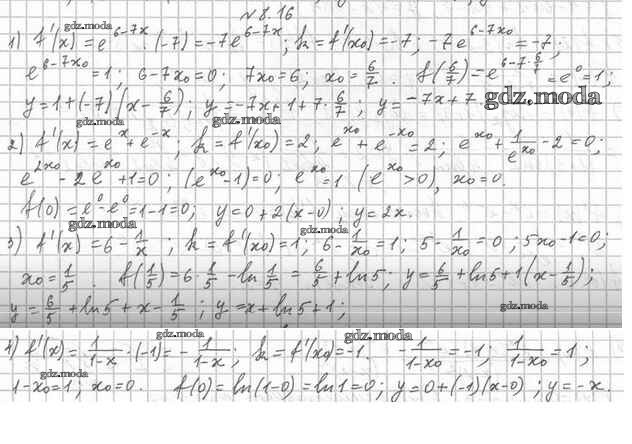 № 8.16
gdz.moda
1) f'(x) = e^{6-7x} · (-7) = -7e^{6-7x}; k = f'(x₀) = -7; -7e^{6-7x₀} = -7;
e^{6-7x₀} = 1; 6-7x₀ = 0; 7x₀ = 6; x₀ = 6/7. f(6/7) = e^{6-7·6/7} = e⁰ = 1;
y = 1 + (-7)(x - 6/7); y = -7x + 1 + 7·6/7; y = -7x + 7 gdz.moda
gdz.moda gdz.moda
2) f'(x) = e^x + e^{-x}; k = f'(x₀) = 2; e^{x₀} + e^{-x₀} = 2; e^{x₀} + 1/e^{x₀} - 2 = 0;
e^{2x₀} - 2e^{x₀} + 1 = 0; (e^{x₀} - 1) = 0; e^{x₀} = 1 (e^{x₀} > 0), x₀ = 0.
f(0) = e⁰ - e⁰ = 1 - 1 = 0; y = 0 + 2(x - 0); y = 2x.
gdz.moda gdz.moda
3) f'(x) = 6 - 1/x; k = f'(x₀) = 1; 6 - 1/x₀ = 1; 5 - 1/x₀ = 0; 5x₀ - 1 = 0;
x₀ = 1/5 f(1/5) = 6·1/5 - ln 1/5 = 6/5 + ln5; y = 6/5 + ln5 + 1(x - 1/5);
y = 6/5 + ln5 + x - 1/5; y = x + ln5 + 1;
gdz.moda gdz.moda
4) f'(x) = 1/(1-x) · (-1) = - 1/(1-x); k = f'(x₀) = -1. - 1/(1-x₀) = -1; 1/(1-x₀) = 1;
gdz.moda
1 - x₀ = 1; x₀ = 0. f(0) = ln(1-0) = ln1 = 0; y = 0 + (-1)(x - 0); y = -x.